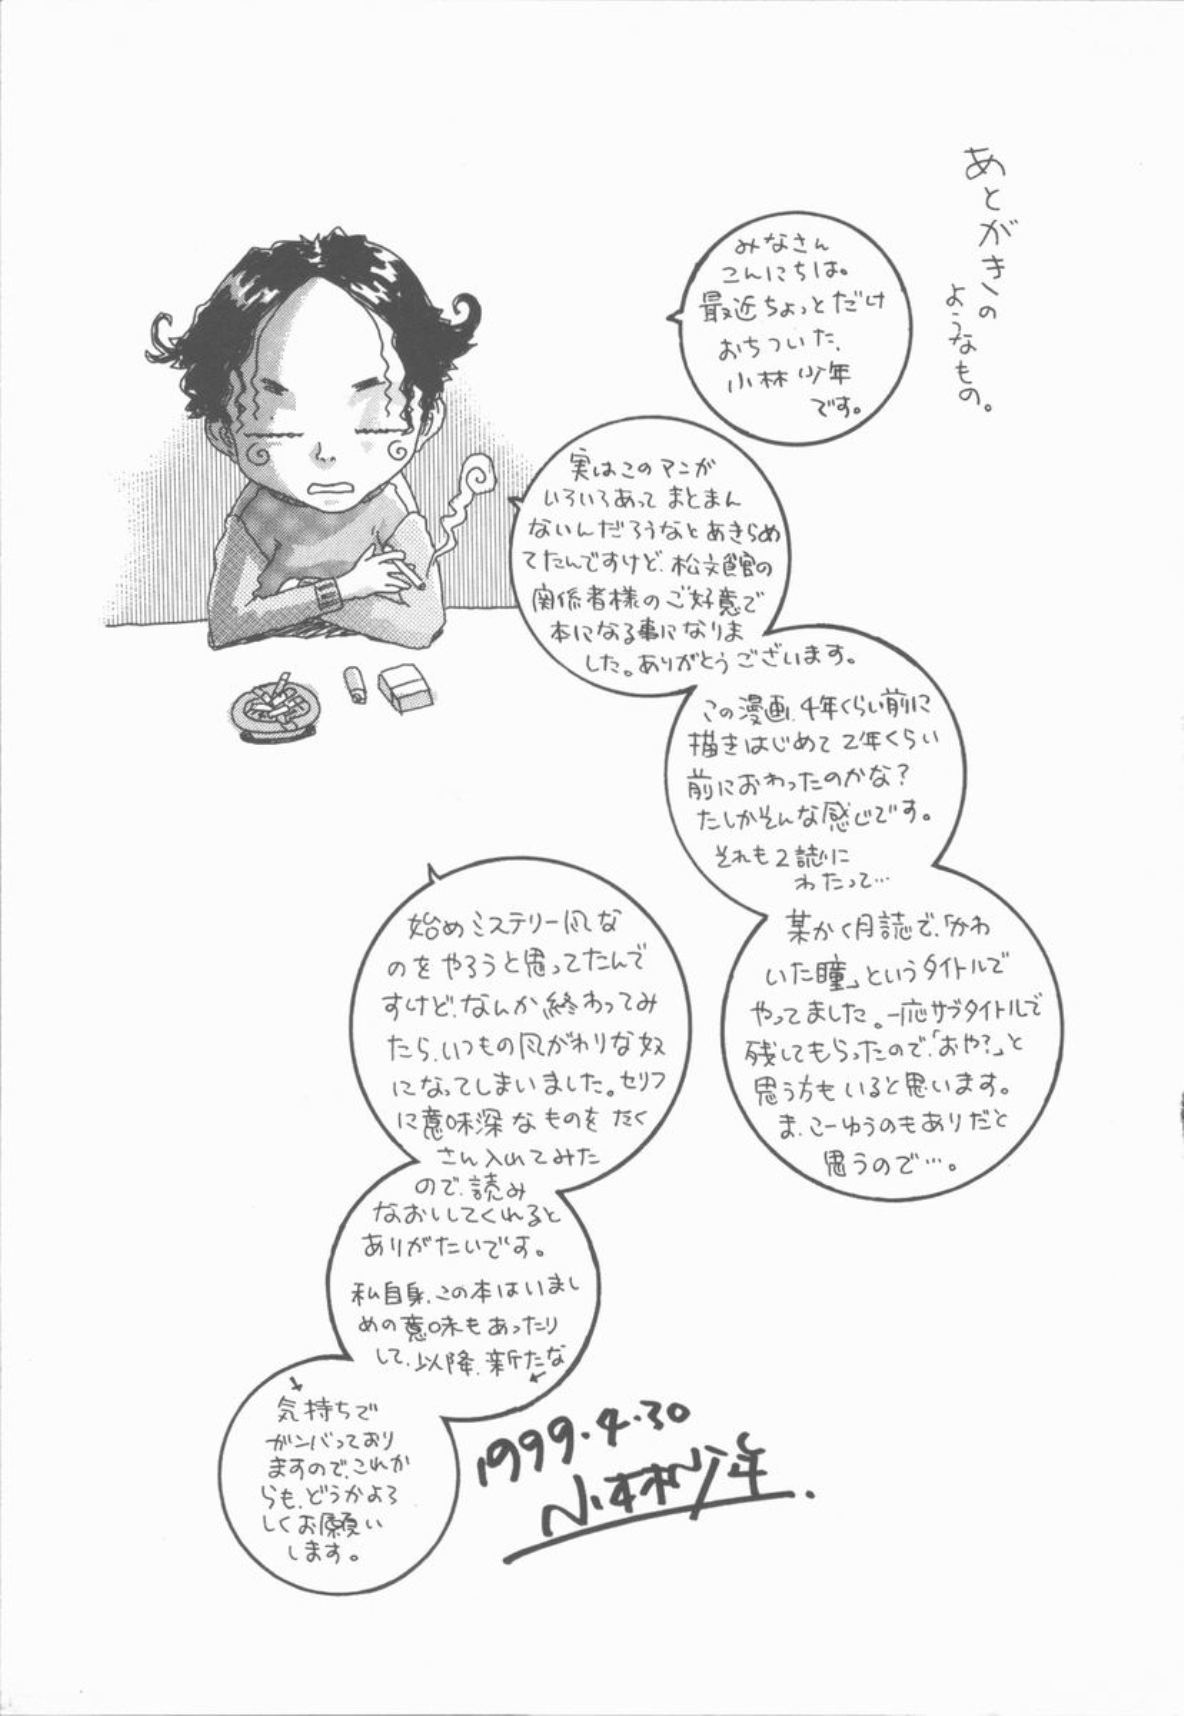 あとがきの
ようなもの。
みなさん
こんにちは。
最近ちょっとだけ
おちついた、
小林少年
です。
実はこのマンガ
いろいろあって まとまん
ないんだろうなとあきらめ
てたんですけど、松文館の
関係者様のご好意で
本になる事になりま
した。ありがとうございます。
この漫画、4年くらい前に
描きはじめて2年くらい
前におわったのかな?
たしかそんな感じです。
それも2誌に
わたって…
某かく月誌で、「かわ
いた瞳」というタイトルで
やってました。一応サブタイトルで
残してもらったので、「おや?」と
思う方もいると思います。
ま、こーゆうのもありだと
思うので…。
始めミステリー風な
のをやろうと思ってたんで
すけど、なんか終わってみ
たら、いつもの風がわりな奴
になってしまいました。セリフ
に意味深なものをたく
さん入れてみた
ので、読み
なおしてくれると
ありがたいです。
私自身、この本はいまし
めの意味もあったり
して、以降、新たな
気持ちで
ガンバっており
ますので、これか
らも、どうかよろ
しくお願い
します。
1999.4.30
小林少年.